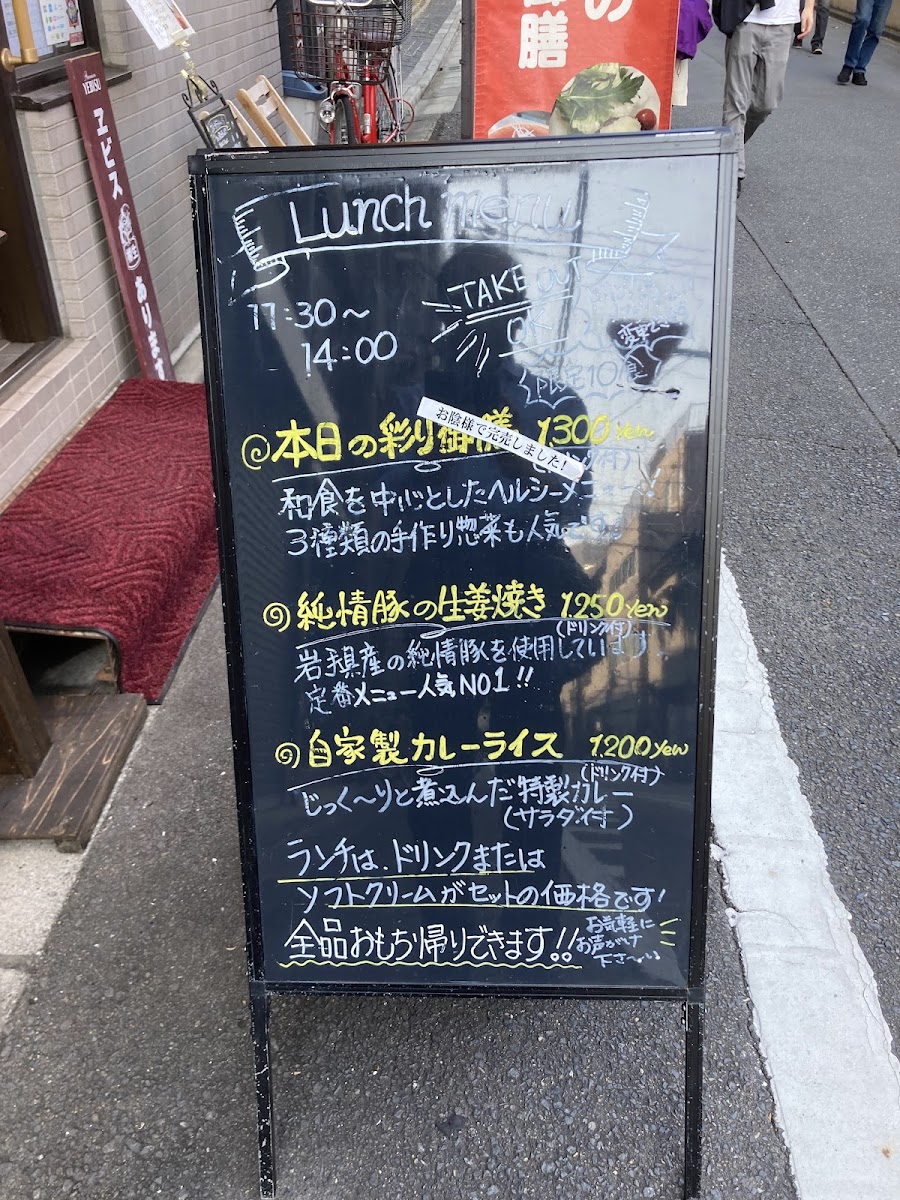 の
御膳
YEBISU
ヱビス
あります
Lunch menu
11:30～
14:00
TAKE OUT
OK
変更できます
限定10食
本日の彩り御膳 1300yen
お陰様で完売しました!
和食を中心としたヘルシーメニュー!!
3種類の手作り惣菜も人気です
純情豚の生姜焼き 1250yen
(ドリンク付)
岩手県産の純情豚を使用しています。
定番メニュー人気NO1!!
自家製カレーライス 1200yen
(ドリンク付)
じっく～りと煮込んだ特製カレー
(サラダ付)
ランチは、ドリンクまたは
ソフトクリームがセットの価格です!
全品おもち帰りできます!!
お気軽に
お声がけ
下さ～い